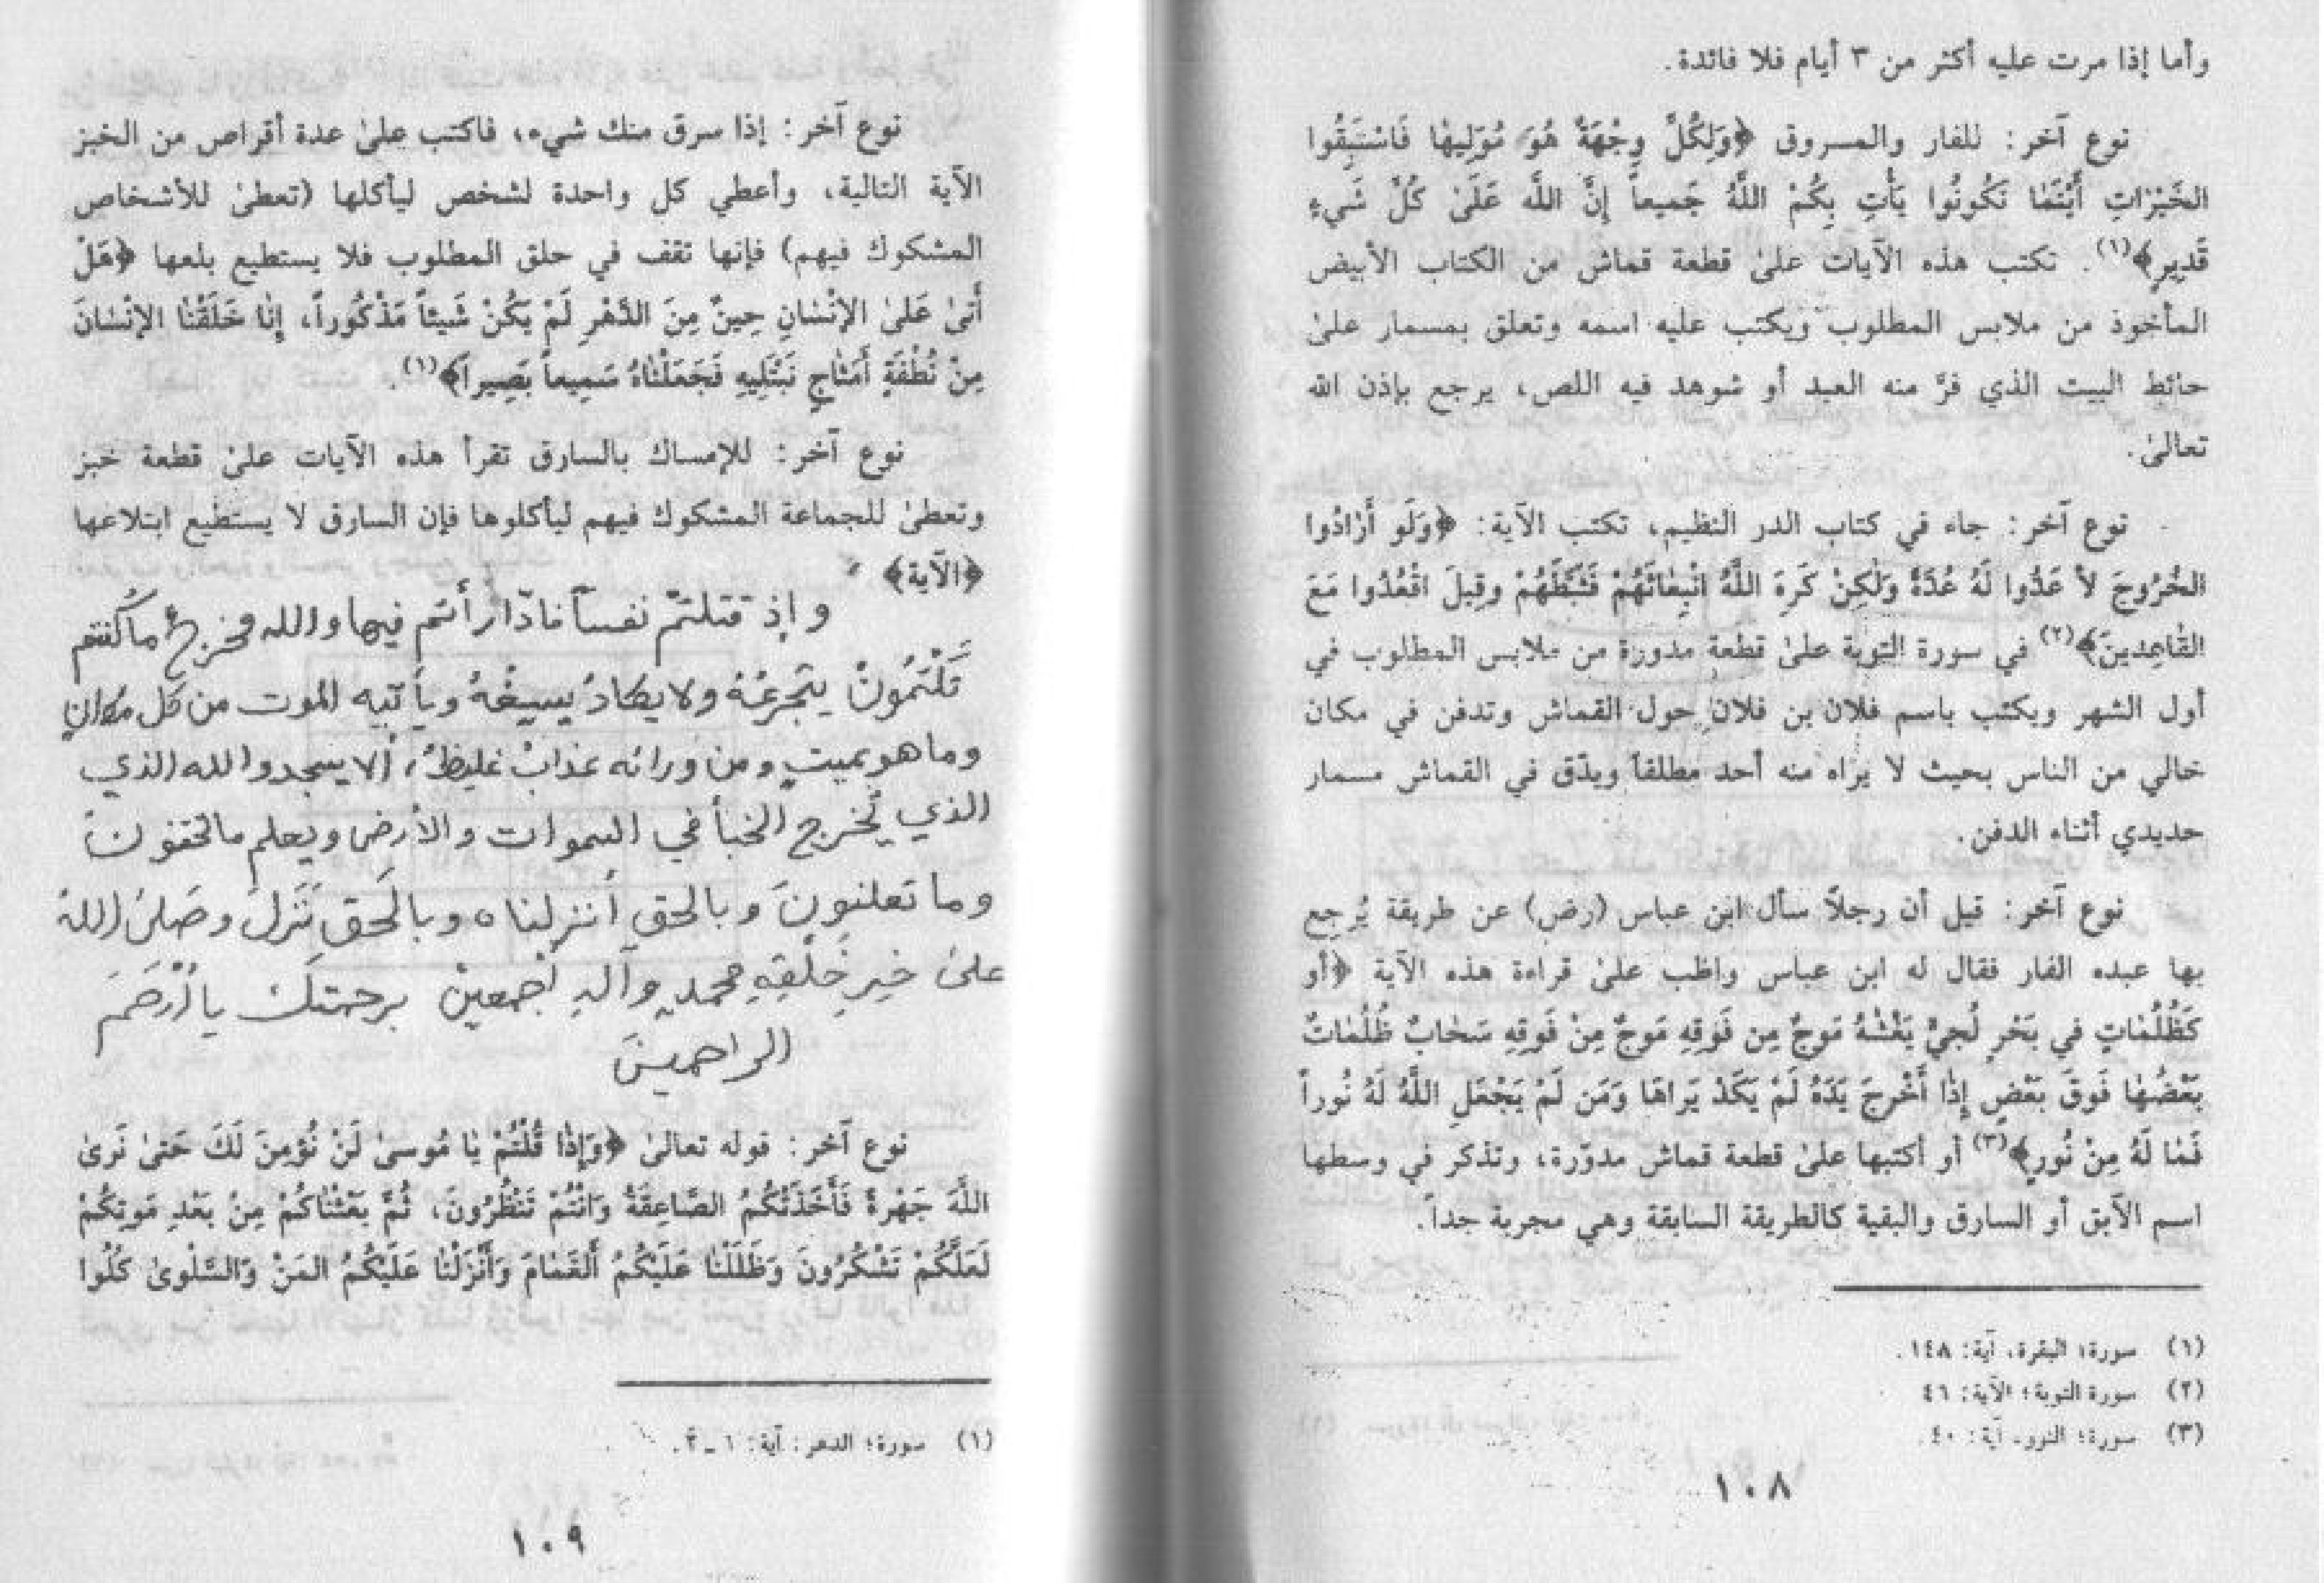 وأما إذا مرت عليه أكثر من ٣ أيام فلا فائدة.
نوع آخر: للفار والمسروق ﴿وَلِكُلٍّ وِجْهَةٌ هُوَ مُوَلِيهٰا فَاسْتَبِقُوا
الخَيْرٰاتِ أَيْنَمٰا تَكُونُوا يَأْتِ بِكُمْ اللَّهُ جَمِيعاً إِنَّ اللَّه عَلَىٰ كُلِّ شَيءٍ
قَدِيرٍ﴾(١). تكتب هذه الآيات علىٰ قطعة قماش من الكتاب الأبيض
المأخوذ من ملابس المطلوب ويكتب عليه اسمه وتعلق بمسمار علىٰ
حائط البيت الذي فرَّ منه العبد أو شوهد فيه اللص، يرجع بإذن الله
تعالىٰ.
نوع آخر: جاء في كتاب الدر النظيم، تكتب الآية: ﴿وَلَو أَرٰادُوا
الخُرُوجَ لأ عَدُّوا لَهُ عُدَّةً وَلٰكِنْ كَرِهَ اللَّهُ انْبِعٰاثَهُمْ فَثَبَّطَهُمْ وقِيلَ اقْعُدُوا مَعَ
القٰاعِدِينَ﴾(٢) في سورة التوبة علىٰ قطعة مدورة من ملابس المطلوب في
أول الشهر ويكتب باسم فلان بن فلان حول القماش وتدفن في مكان
خالي من الناس بحيث لا يراه منه أحد مطلقاً ويدّق في القماش مسمار
حديدي أثناء الدفن.
نوع آخر: قيل أن رجلاً سأل ابن عباس (رض) عن طريقة يُرجع
بها عبده الفار فقال له ابن عباس واظب علىٰ قراءة هذه الآية ﴿أو
كَظُلُمٰاتٍ في بَحْرِ لُجيٍّ يَغْشٰهُ مَوجٌ مِن فَوَقِهِ مَوجٌ مِنْ فَوقِهِ سَحٰابٌ ظُلُمٰاتٌ
بَعْضُهٰا فَوقَ بَعْضٍ إِذٰا أَخْرجَ يَدَهُ لَمْ يَكَدْ يَراهَا وَمَن لَمْ يَجْعَلِ اللَّهُ لَهُ نُوراً
فَمٰا لَهُ مِنْ نُورٍ﴾(٣) أو أكتبها علىٰ قطعة قماش مدوّرة، وتذكر في وسطها
اسم الآبق أو السارق والبقية كالطريقة السابقة وهي مجربة جداً.
(١) سورة؛ البقرة، آية: ١٤٨.
(٢) سورة التوبة؛ الآية: ٤٦
(٣) سورة؛ النور- آية: ٤٠.
١٠٨
نوع آخر: إذا سرق منك شيء، فاكتب علىٰ عدة أقراص من الخبز
الآية التالية، وأعطي كل واحدة لشخص ليأكلها (تعطىٰ للأشخاص
المشكوك فيهم) فإنها تقف في حلق المطلوب فلا يستطيع بلعها ﴿هَلْ
أَتىٰ عَلىٰ الإنْسٰانِ حِينٌ مِنَ الدَّهْرِ لَمْ يَكُنْ شَيئاً مَذْكُوراً، إِنٰا خَلَقْنٰا الإنْسٰانَ
مِنْ نُطْفَةٍ أَمْشٰاجٍ نَبْتَلِيهِ فَجَعَلْنٰاهُ سَمِيعاً بَصِيراً﴾(١).
نوع آخر: للإمساك بالسارق تقرأ هذه الآيات علىٰ قطعة خبز
وتعطىٰ للجماعة المشكوك فيهم ليأكلوها فإن السارق لا يستطيع ابتلاعها
﴿الآية﴾
وإذ قتلتمْ نفساً فادّارأتم فيها والله مخرجٌ ما كُنتم
تَكْتُمُونْ يتجرعُهُ ولا يكادُ يسيغُهُ ويأتيه الموت من كل مكانٍ
وما هو بميتٍ ومن ورائه عذابٌ غليظٌ، ألا يسجدوا لله الذي
الذي يُخرج الخبأ في السموات والأرض ويعلم ما تخفونَ
وما تعلنونَ وبالحقِ أنزلناه وبالحقِ نَزَلَ وصَلىٰ اللهُ
علىٰ خيرِ خَلْقِهِ محمدٍ وآلهِ أجمعينْ برحمتكَ يا أرْحَمَ
الراحمينَ
نوع آخر: قوله تعالىٰ ﴿وَإِذٰا قُلْتُمْ يٰا مُوسىٰ لَنْ نُؤمِنَ لَكَ حَتىٰ نَرىٰ
اللَّهَ جَهْرةً فَأَخَذَتْكُمُ الصَّاعِقَةُ وَانْتُمْ تَنْظُرُونَ، ثُمَّ بَعَثْنٰاكُمْ مِنْ بَعْدِ مَوتِكُمْ
لَعَلَّكُمْ تَشْكُرُونَ وَظَلَلْنٰا عَلَيْكُمُ أَلغَمٰامَ وَأَنْزَلْنٰا عَلَيْكُمُ المَنْ وَالسَّلْوىٰ كُلُوا
(١) سورة؛ الدهر: آية: ١ـ٢.
١٠٩